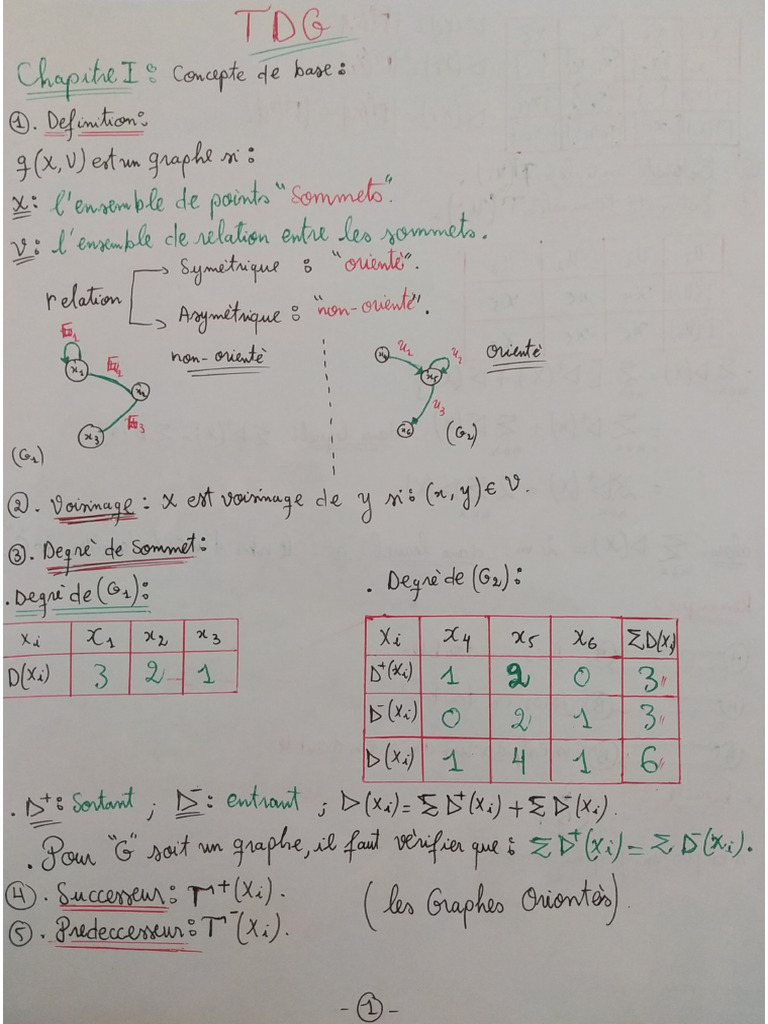 TDG
Chapitre I : Concepte de base :
①. Definition :
g(X, V) est un graphe si :
X : l'ensemble de points "Sommets".
V : l'ensemble de relation entre les sommets.
relation
→ Symétrique : "orientè".
→ Asymétrique : "non-orientè".
non-orientè
x1
x2
x3
(G1)
orientè
u1
u2
u3
x4
x5
x6
(G2)
②. Voisinage : x est voisinage de y si : (x, y) ∈ V.
③. Degrè de Sommet :
. Degrè de (G1) :
Xi X1 x2 x3
D(Xi) 3 2 1
. Degrè de (G2) :
Xi X4 X5 X6 ΣD(Xi)
D⁺(Xi) 1 2 0 3
D⁻(Xi) 0 2 1 3
D(Xi) 1 4 1 6
. D⁺ : Sortant ; D⁻ : entrant ; D(Xi) = ΣD⁺(Xi) + ΣD⁻(Xi).
. Pour "G" soit un graphe, il faut vèrifier que : ΣD⁺(Xi) = ΣD⁻(Xi).
④. Successeur : Γ⁺(Xi).
(les Graphes Oriontès).
⑤. Predeccesseur : Γ⁻(Xi).
- ① -